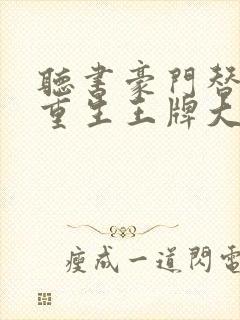 聽書豪門替
重生王牌大
瘦成一道閃電